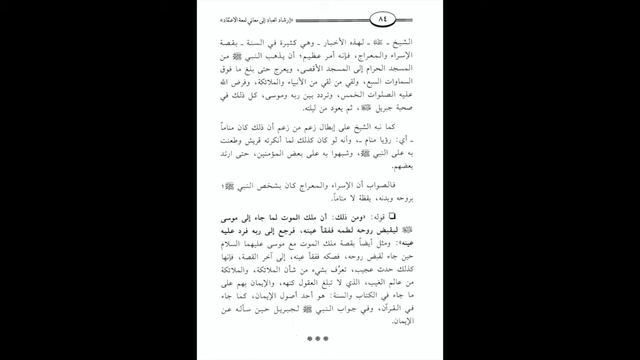 «إرشاد العباد إلى معاني لمعة الاعتقاد»
٨٤
الشيخ ـ رحمه الله ـ لهذه الأخبار ـ وهي كثيرة في السنة ـ بقصة
الإسراء والمعراج، فإنه أمر عظيم؛ أن يذهب النبي ﷺ من
المسجد الحرام إلى المسجد الأقصى، ويعرج حتى بلغ ما فوق
السماوات السبع، ولقي من لقي من الأنبياء والملائكة، وفرض الله
عليه الصلوات الخمس، وتردد بين ربه وموسى، كل ذلك في
صحبة جبريل ﷺ، ثم يعود من ليلته.
كما نبه الشيخ على إبطال زعم من زعم أن ذلك كان مناماً
ـ أي: رؤيا منام ـ، وأنه لو كان كذلك لما أنكرته قريش وطعنت
به على النبي ﷺ، وشبهوا به على بعض المؤمنين، حتى ارتد
بعضهم.
فالصواب أن الإسراء والمعراج كان بشخص النبي ﷺ؛
بروحه وبدنه، يقظة لا مناماً.
❑ قوله: «ومن ذلك: أن ملك الموت لما جاء إلى موسى
ﷺ ليقبض روحه لطمه ففقأ عينه، فرجع إلى ربه فرد عليه
عينه»: ومثل أيضاً بقصة ملك الموت مع موسى عليهما السلام
حين جاء لقبض روحه، فصكه ففقأ عينه، إلى آخر القصة، فإنها
كذلك حدث عجيب، تعرِّف بشيء من شأن الملائكة، والملائكة
من عالم الغيب، الذي لا تبلغ العقول كنهه، والإيمان بهم على
ما جاء في الكتاب والسنة: هو أحد أصول الإيمان، كما جاء
في القرآن، وفي جواب النبي ﷺ لجبريل حين سأله عن
الإيمان.
* * *